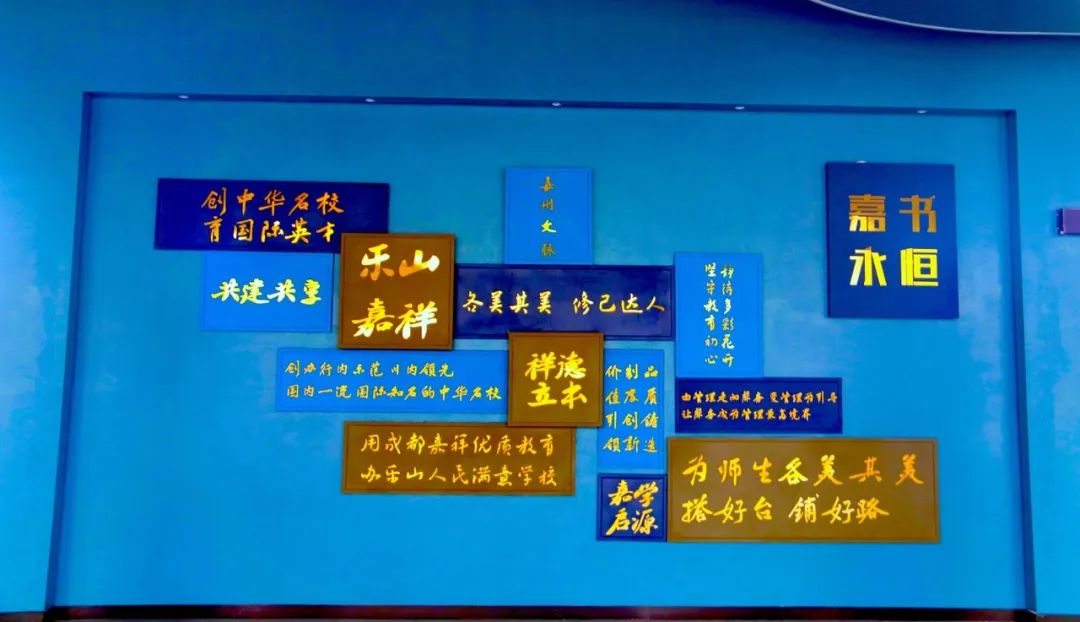 创中华名校
育国际英才
嘉州文脉
嘉书
永恒
共建共享
乐山
嘉祥
各美其美 修己达人
静待多彩花开
坚守教育初心
创办行内示范 川内领先
国内一流 国际知名的中华名校
祥德
立本
价制品
值度质
引创铸
领新造
由管理走向服务 变管理为引导
让服务成为管理最高境界
用成都嘉祥优质教育
办乐山人民满意学校
嘉学
启源
为师生各美其美
搭好台 铺好路